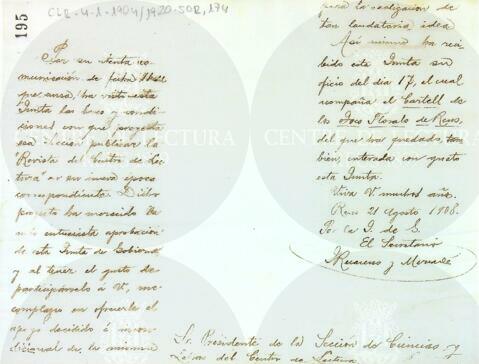 CLR-4-1-1904/1920-502,174
195
Por su atenta co-
municación de fecha
que cursa, ha visto esta
Junta las bases y condi-
ciones con que proyecta
esa Sección publicar la
"Revista del Centro de Lec-
tura" en su nueva época
correspondiente. Dicho
proyecto ha merecido
entusiasta aprobación
de esta Junta de Gobierno,
y al tener el gusto de
participárselo á V, me
complazco en ofrecerle el
apoyo decidido é incon-
dicional de la misma
para la realización de
tan laudatoria idea
Así mismo ha reci-
bido esta Junta su
oficio del día 17, el cual
compaña el Cartell de
los Jocs Florals de Reus,
del que ha quedado, tam-
bién, enterada con gusto
esta Junta.
Viva V muchos años.
Reus 21 Agosto 1908.
Por la J. de G.
El Secretario
Sr. Presidente de la Sección de Ciencias y
Letras del Centro de Lectura
CENTRE DE LECTURA